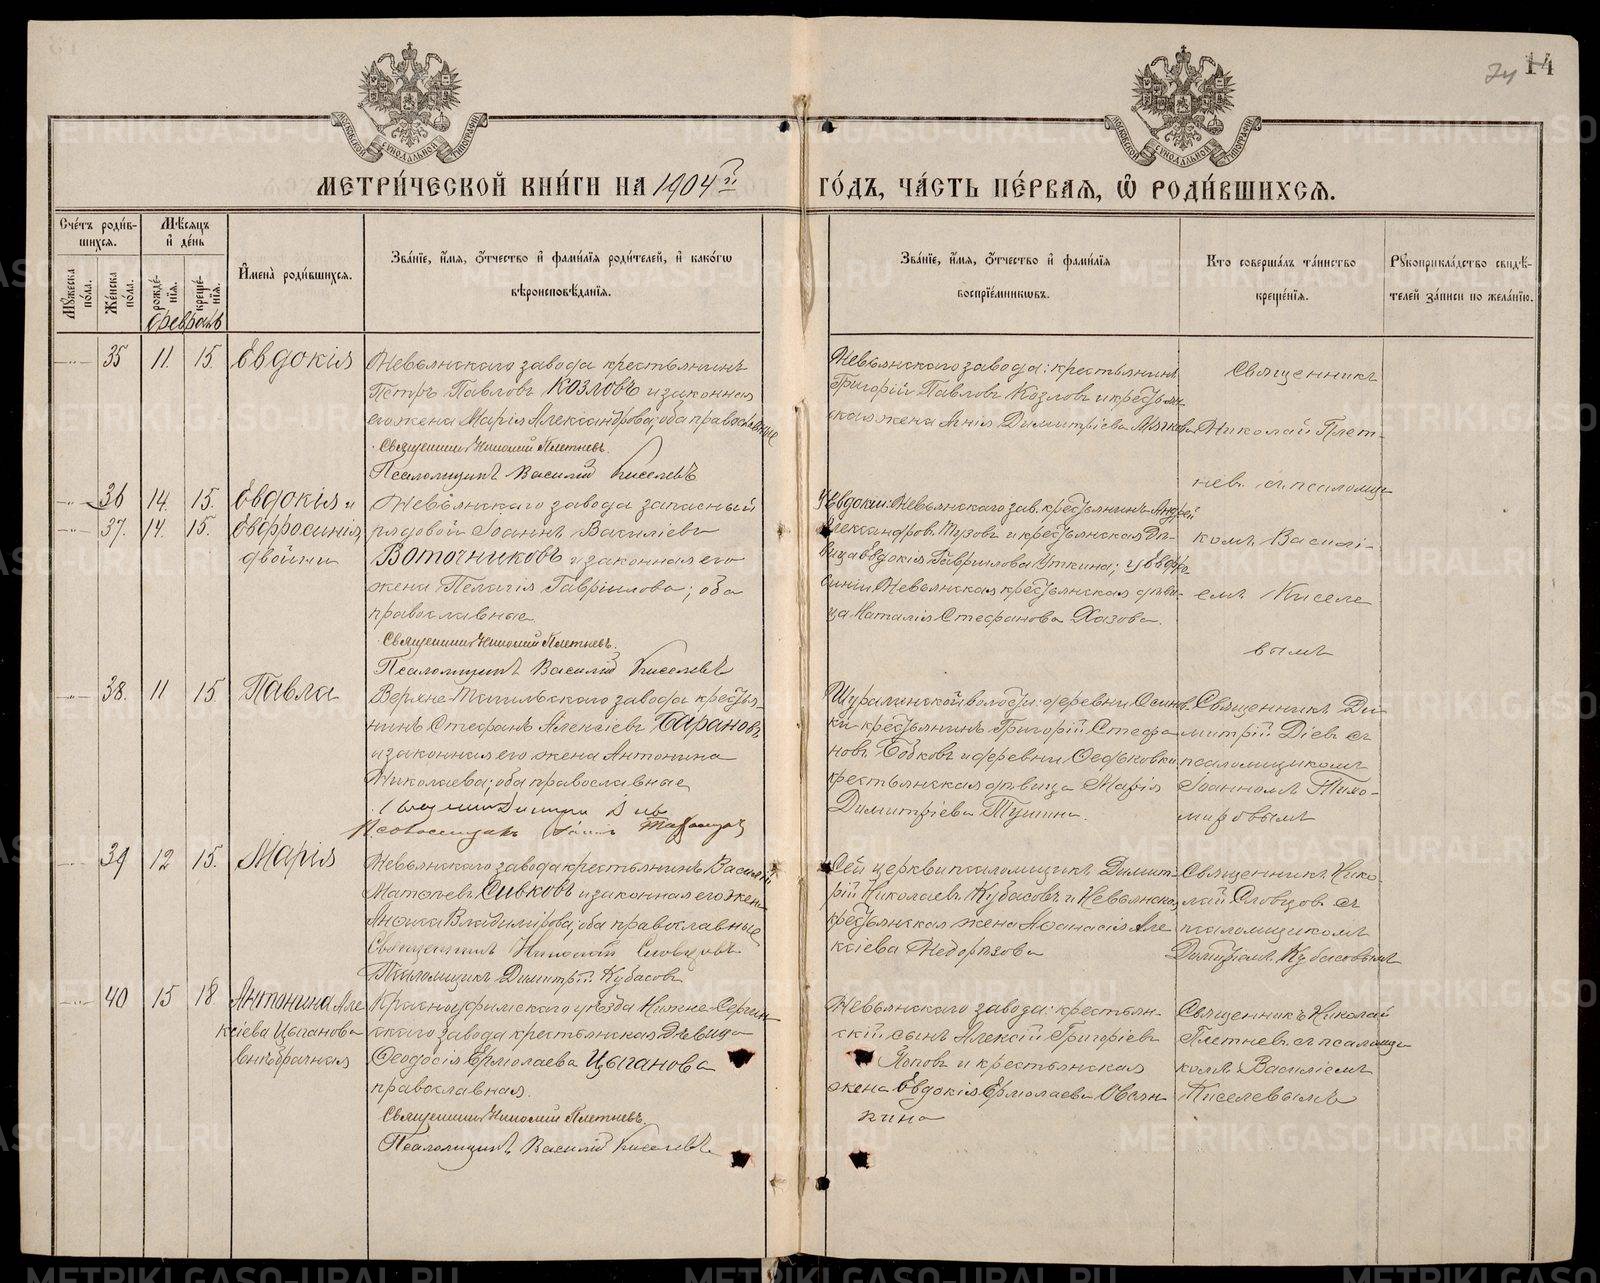 14
МОСКОВСКОЙ СУНОДАЛЬНОЙ ТИПОГРАФІИ
МОСКОВСКОЙ СУНОДАЛЬНОЙ ТИПОГРАФІИ
МЕТРИ́ЧЕСКОЙ КНИ́ГИ НА 1904й ГО́ДЪ, ЧА́СТЬ ПЕ́РВАЯ, Ѽ РОДИ́ВШИХСЯ.
Сче́тъ роди́в-
шихся.
Мѣ́сяцъ
и҆ де́нь
И҆мена̀ роди́вшихся.
Зва́нїе, и҆́мя, ѻ҆́тчество и҆ фами́лїя роди́телей, и҆ како́гѡ
вѣроисповѣ́данїя.
Зва́нїе, и҆́мя, ѻ҆́тчество и҆ фами́лїя
воспрїе́мникѡвъ.
Кто соверша́лъ та́инство
креще́нїя.
Рꙋкоприкла́дство свидѣ́-
телей за́писи по жела́нїю.
Мꙋ́жеска
по́ла.
Же́нска
по́ла.
рожде́-
нїя.
креще́-
нїя.
Февраль
35 11. 15. Евдокія
Невьянскаго завода крестьянинъ
Петръ Павловъ Козловъ и законная
его жена Марія Александрова; оба православные
Священникъ Николай Плетневъ.
Псаломщикъ Василій Киселевъ
Невьянскаго завода: крестьянинъ
Григорій Павловъ Козловъ и крестьян-
ская жена Анна Димитріева
Священникъ
Николай Плет-
невъ съ псаломщи-
комъ Василі-
емъ Киселе
вымъ
36 14. 15. Евдокія и
37. 14. 15. Евфросинія,
двойни
Невьянскаго завода запасный
рядовой Іоаннъ Василіевъ
Воточниковъ и законная его
жена Пелагія Гавріилова; оба
православные.
Священникъ Николай Плетневъ.
Псаломщикъ Василій Киселевъ
У Евдокіи: Невьянскаго зав. крестьянинъ Андрей
Александровъ Тузовъ и крестьянская дѣ-
вица Евдокія Гавриилова Уткина; у Евфро-
синіи Невьянская крестьянская дѣви-
ца Наталія Стефанова Хазова.
38. 11 15 Павла
Верхне-Тагильскаго завода крестья-
нинъ Стефанъ Алексіевъ Барановъ
и законная его жена Антонина
Николаева; оба православные
Священникъ Димитрій Діевъ
Псаломщикъ
Шуралинской волости: деревни Осинов-
ки крестьянинъ Григорій Стефа-
новъ Бобковъ и деревни Федьковки
крестьянская дѣвица Марія
Димитріева Тушина.
Священникъ Ди-
митрій Діевъ съ
псаломщикомъ
Іоанномъ Тихо-
мировымъ
39 12 15. Марія
Невьянскаго завода крестьянинъ Василій
Сивковъ и законная его жена
Владимірова; оба православные
Священникъ Николай Словцовъ
Псаломщикъ Димитрій Кубасовъ
Сей церкви псаломщикъ Димит-
рій Николаевъ Кубасовъ и Невьянская
крестьянская жена Афанасія Але
ксіева Недорѣзова
Священникъ Нико-
лай Словцовъ съ
псаломщикомъ
Димитріемъ Кубасовымъ
40 15 18. Антонина Але
ксіева Цыганова
внѣбрачная
Красноуфимскаго уѣзда Нижне-Сергин-
скаго завода крестьянская дѣвица
Феодосія Ермолаева Цыганова
православная.
Священникъ Николай Плетневъ,
Псаломщикъ Василій Киселевъ
Невьянскаго завода: крестьян-
скій сынъ Алексій Григоріевъ
Поповъ и крестьянская
жена Евдокія Ермолаева Овсян-
кина
Священникъ Николай
Плетневъ съ псаломщи-
комъ Василіемъ
Киселевымъ
METRIKI.GASO-URAL.RU